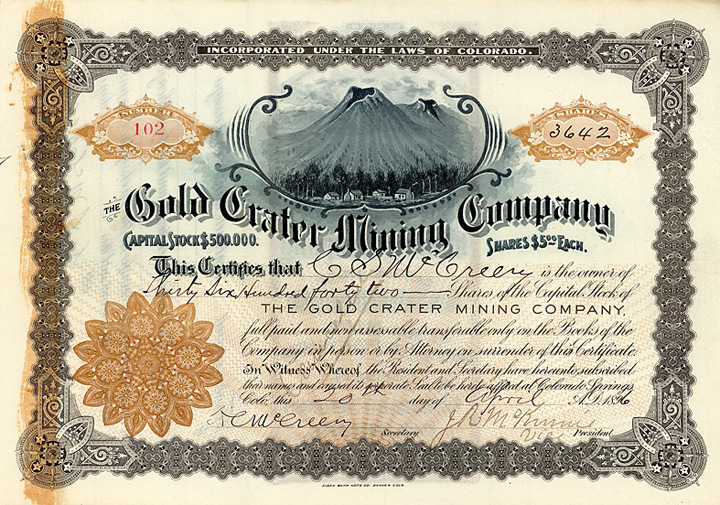 INCORPORATED UNDER THE LAWS OF COLORADO.
NUMBER
102
SHARES
3642
THE Gold Crater Mining Company
CAPITAL STOCK $500.000.
SHARES $5.00 EACH.
This Certifies that C S McCreery is the owner of
Thirty Six Hundred forty two Shares of the Capital Stock of
THE GOLD CRATER MINING COMPANY,
full paid and non assessable transferable only on the Books of the
Company in person or by Attorney on surrender of this Certificate.
In Witness Whereof, the President and Secretary have hereunto subscribed
their names and caused its corporate Seal to be hereto affixed at Colorado Springs,
Colo. this 20th day of April A.D. 1896
McCreery
Secretary
Vice President